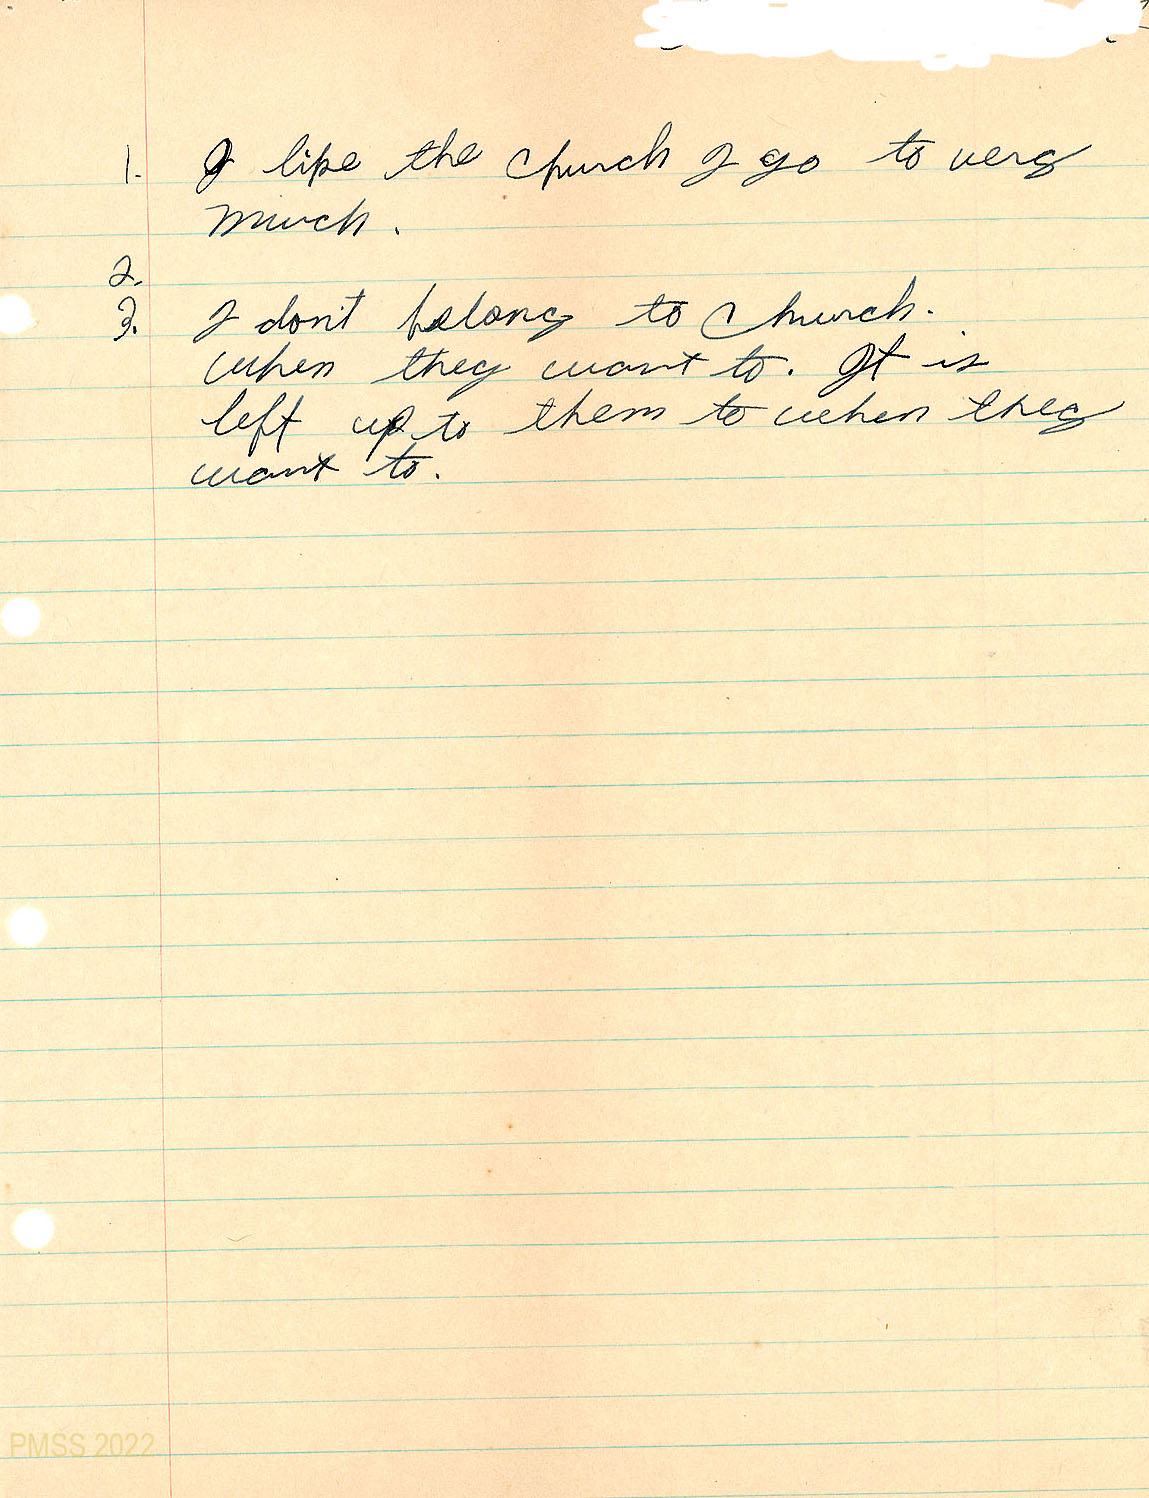 1. I like the church I go to very
much.
2.
3. I don't belong to church.
when they want to. It is
left up to them to when they
want to.
PMSS 2022